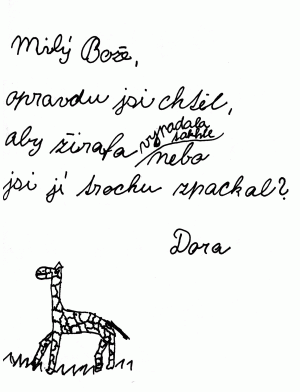 Milý Bože,
opravdu jsi chtěl,
aby žirafa vypadala takhle
nebo
jsi jí trochu zpackal?
Dora